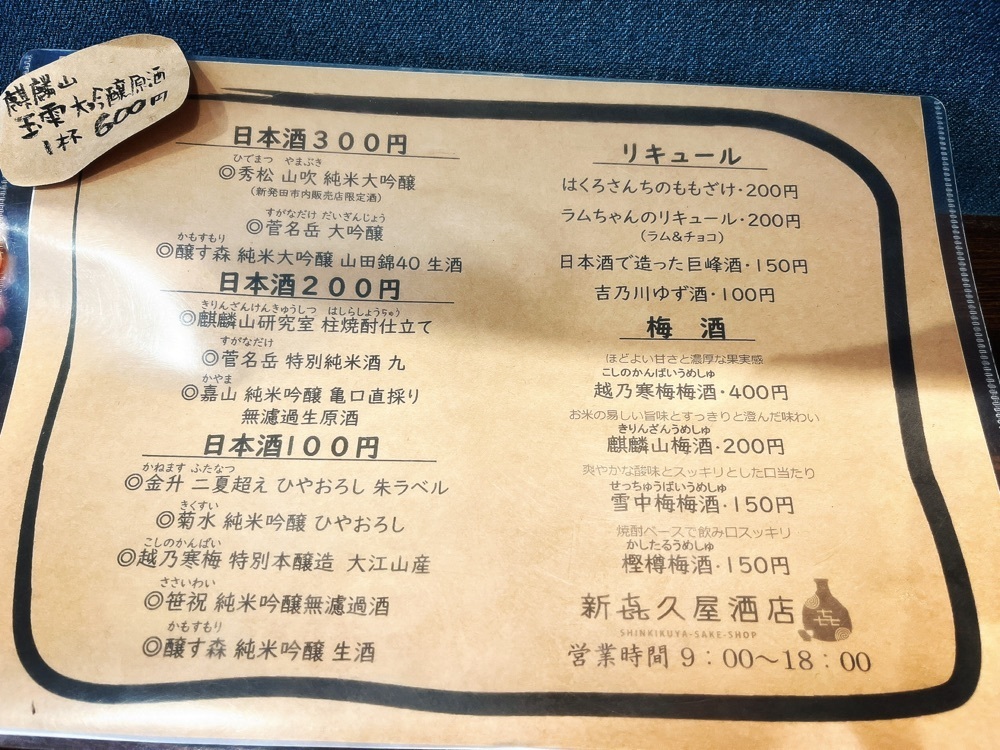 麒麟山
玉雫 大吟醸原酒
1杯 600円
日本酒300円
ひでまつ やまぶき
◎秀松 山吹 純米大吟醸
(新発田市内販売店限定酒)
すがなだけ だいぎんじょう
◎菅名岳 大吟醸
かもすもり
◎醸す森 純米大吟醸 山田錦40 生酒
日本酒200円
きりんざんけんきゅうしつ はしらしょうちゅう
◎麒麟山研究室 柱焼酎仕立て
すがなだけ
◎菅名岳 特別純米酒 九
かやま
◎嘉山 純米吟醸 亀口直採り
無濾過生原酒
日本酒100円
かねます ふたなつ
◎金升 二夏超え ひやおろし 朱ラベル
きくすい
◎菊水 純米吟醸 ひやおろし
こしのかんばい
◎越乃寒梅 特別本醸造 大江山産
ささいわい
◎笹祝 純米吟醸無濾過酒
かもすもり
◎醸す森 純米吟醸 生酒
リキュール
はくろさんちのももざけ・200円
ラムちゃんのリキュール・200円
(ラム&チョコ)
日本酒で造った巨峰酒・150円
吉乃川ゆず酒・100円
梅 酒
ほどよい甘さと濃厚な果実感
こしのかんばいうめしゅ
越乃寒梅梅酒・400円
お米の易しい旨味とすっきりと澄んだ味わい
きりんざんうめしゅ
麒麟山梅酒・200円
爽やかな酸味とスッキリとした口当たり
せっちゅうばいうめしゅ
雪中梅梅酒・150円
焼酎ベースで飲み口スッキリ
かしたるうめしゅ
樫樽梅酒・150円
新㐂久屋酒店
SHINKIKUYA-SAKE-SHOP
営業時間 9:00~18:00